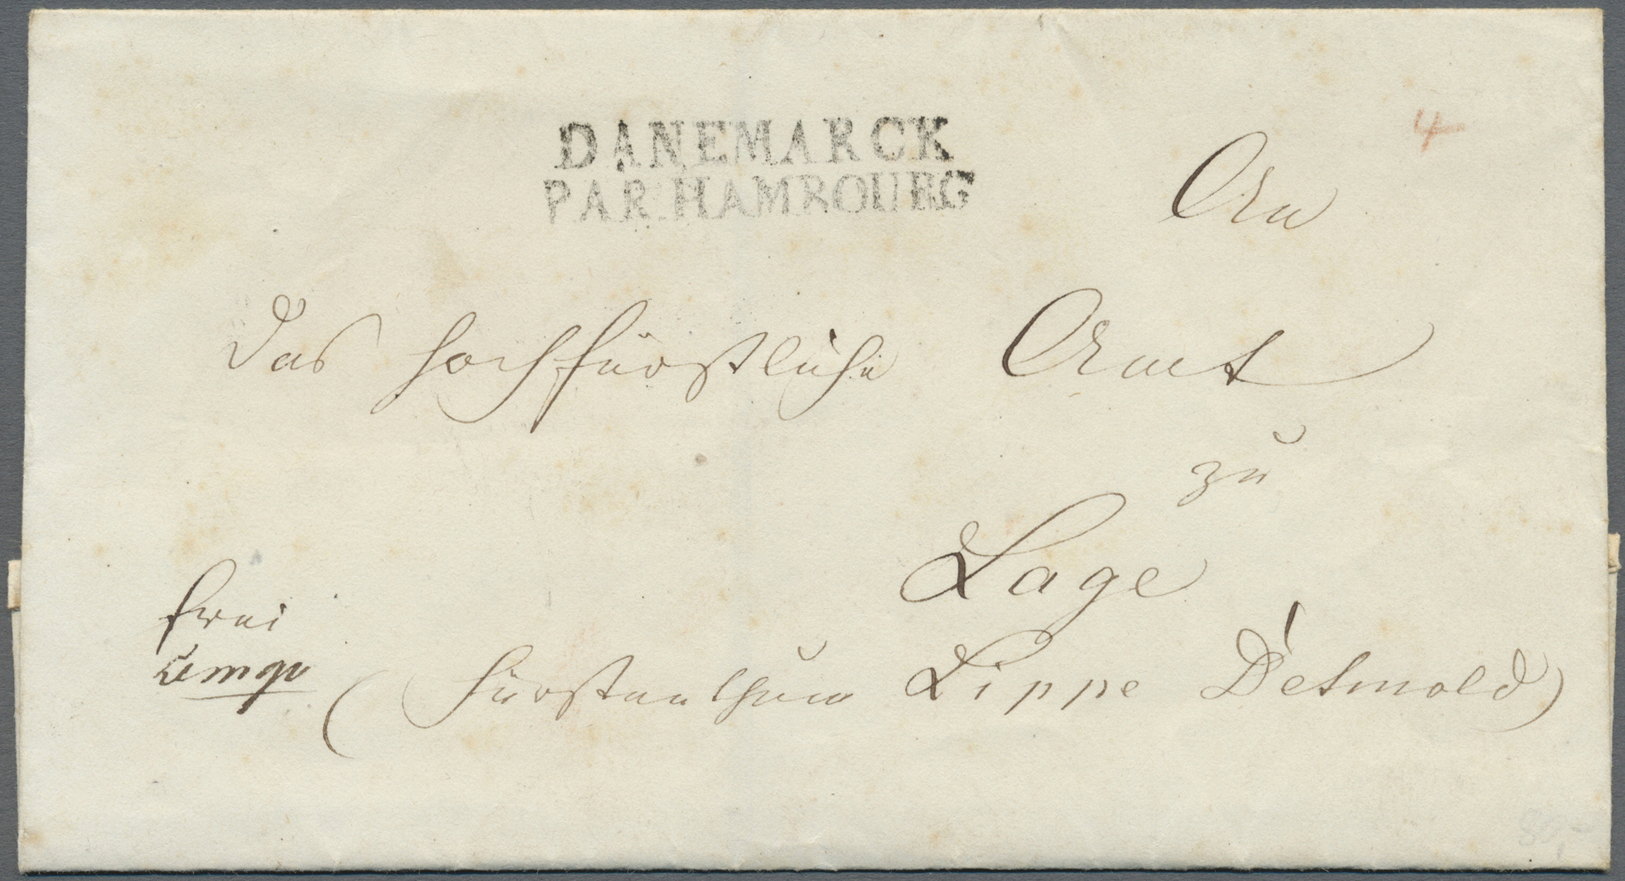 DANEMARCK
PAR HAMBOURG
4
An
das hochfürstliche Amt
zu
Lage
frei
Lemgo
(Fürstenthum Lippe Detmold)
80,-